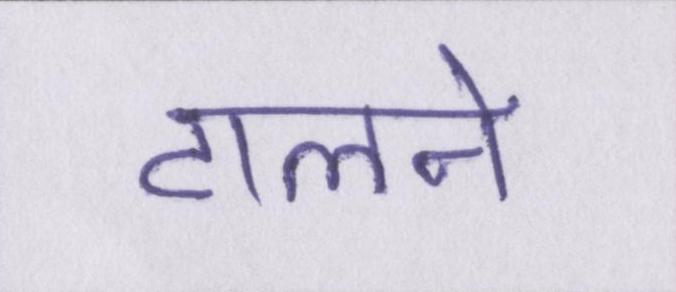 टालने